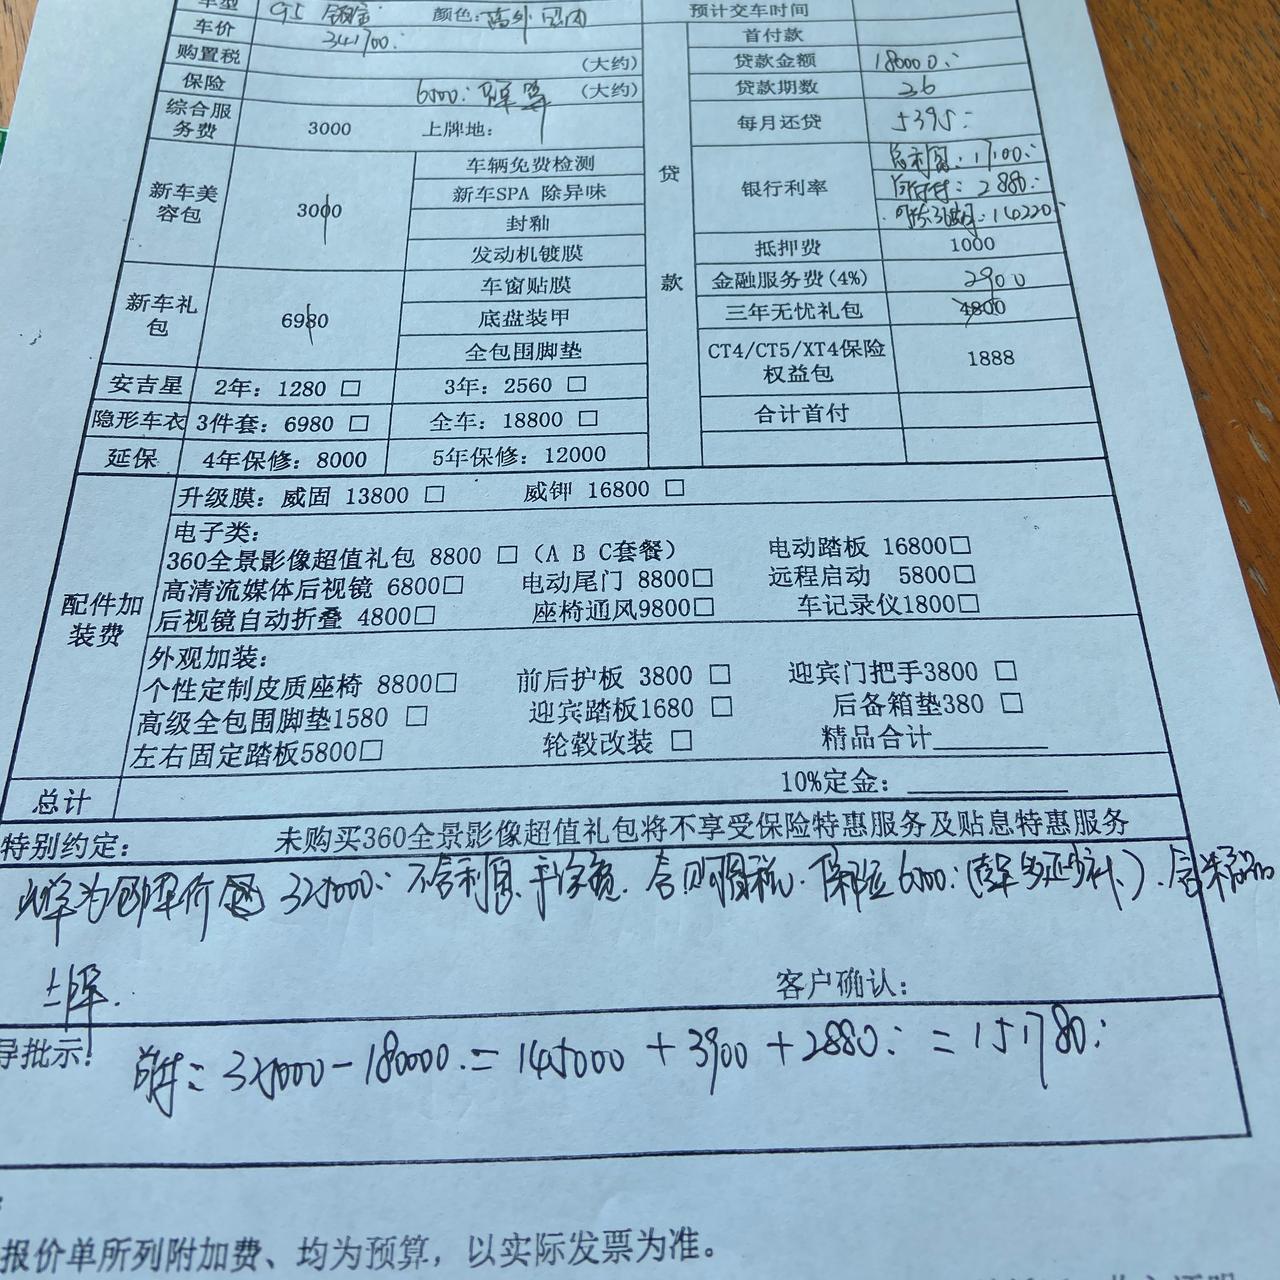 车型 颜色: 预计交车时间
车价 341700: 首付款
购置税 (大约) 贷款金额 180000:
保险 6500: (大约) 贷款期数 36
综合服务费 3000 上牌地: 每月还贷 5395:
贷款
新车美容包 3000 车辆免费检测
新车SPA 除异味
封釉
发动机镀膜
银行利率 总利息: 17100:
首付: 2880:
14220:
抵押费 1000
新车礼包 6980 车窗贴膜
底盘装甲
全包围脚垫
金融服务费(4%) 2900
三年无忧礼包 4800
CT4/CT5/XT4保险权益包 1888
安吉星 2年: 1280 □ 3年: 2560 □
隐形车衣 3件套: 6980 □ 全车: 18800 □ 合计首付
延保 4年保修: 8000 5年保修: 12000
配件加装费
升级膜: 威固 13800 □ 威钾 16800 □
电子类:
360全景影像超值礼包 8800 □ (A B C套餐) 电动踏板 16800□
高清流媒体后视镜 6800□ 电动尾门 8800□ 远程启动 5800□
后视镜自动折叠 4800□ 座椅通风9800□ 车记录仪1800□
外观加装:
个性定制皮质座椅 8800□ 前后护板 3800 □ 迎宾门把手3800 □
高级全包围脚垫1580 □ 迎宾踏板1680 □ 后备箱垫380 □
左右固定踏板5800□ 轮毂改装 □ 精品合计
总计 10%定金:
特别约定: 未购买360全景影像超值礼包将不享受保险特惠服务及贴息特惠服务
325000: 不含利息 含购置税. 保险6500:
上牌.
客户确认:
导批示: 首付: 325000-180000.=145000+3900+2880:=151780:
报价单所列附加费、均为预算，以实际发票为准。